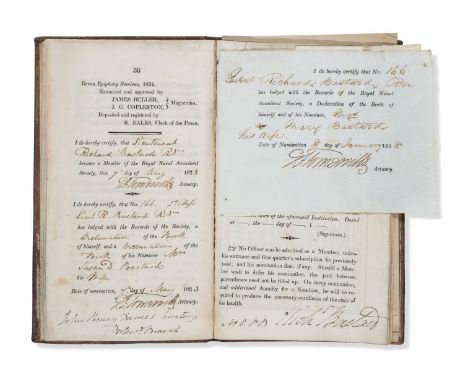 36
Devon Epiphany Sessions, 1824.
Examined and approved by
JAMES BULLER,
J. G. COPLESTON,
} Magistrates.
Deposited and registered by
R. EALES, Clerk of the Peace.
I do hereby certify, that Lieutenant
Richard Bastard RN
became a Member of the Royal Naval Annuitant
Society, this 7th day of May 1823
Actuary.
I do hereby certify, that No. 166
Lieut R. Bastard RN
has lodged with the Records of the Society, a
Declaration of the Birth
of himself, and a Declaration of the
Birth of his Nominee Mrs
Susan D Bastard
Wife
Date of nomination, 7th day of May 1823
Actuary.
I do hereby certify that No. 166
Lieut Richard Bastard, RN
has lodged with the Records of the Royal Naval
Annuitant Society, a Declaration of the Birth of
himself and of his Nominee, Mrs
Mary Bastard
his Wife
Date of Nomination 8 day of January 1838
Actuary.
of the aforesaid Institution. Dated
at , the day of 1
(Signature.)
No Officer can be admitted as a Member, unless
his entrance and first quarter's subscription be previously
paid; and his nomination due, if any. Should a Member
wish to defer his nomination, the part between
parentheses need not be filled up. On every nomination,
and additional Annuity for a Nominee, he will be required
to produce the necessary certificate of the state of
his health.
Richd Bastard